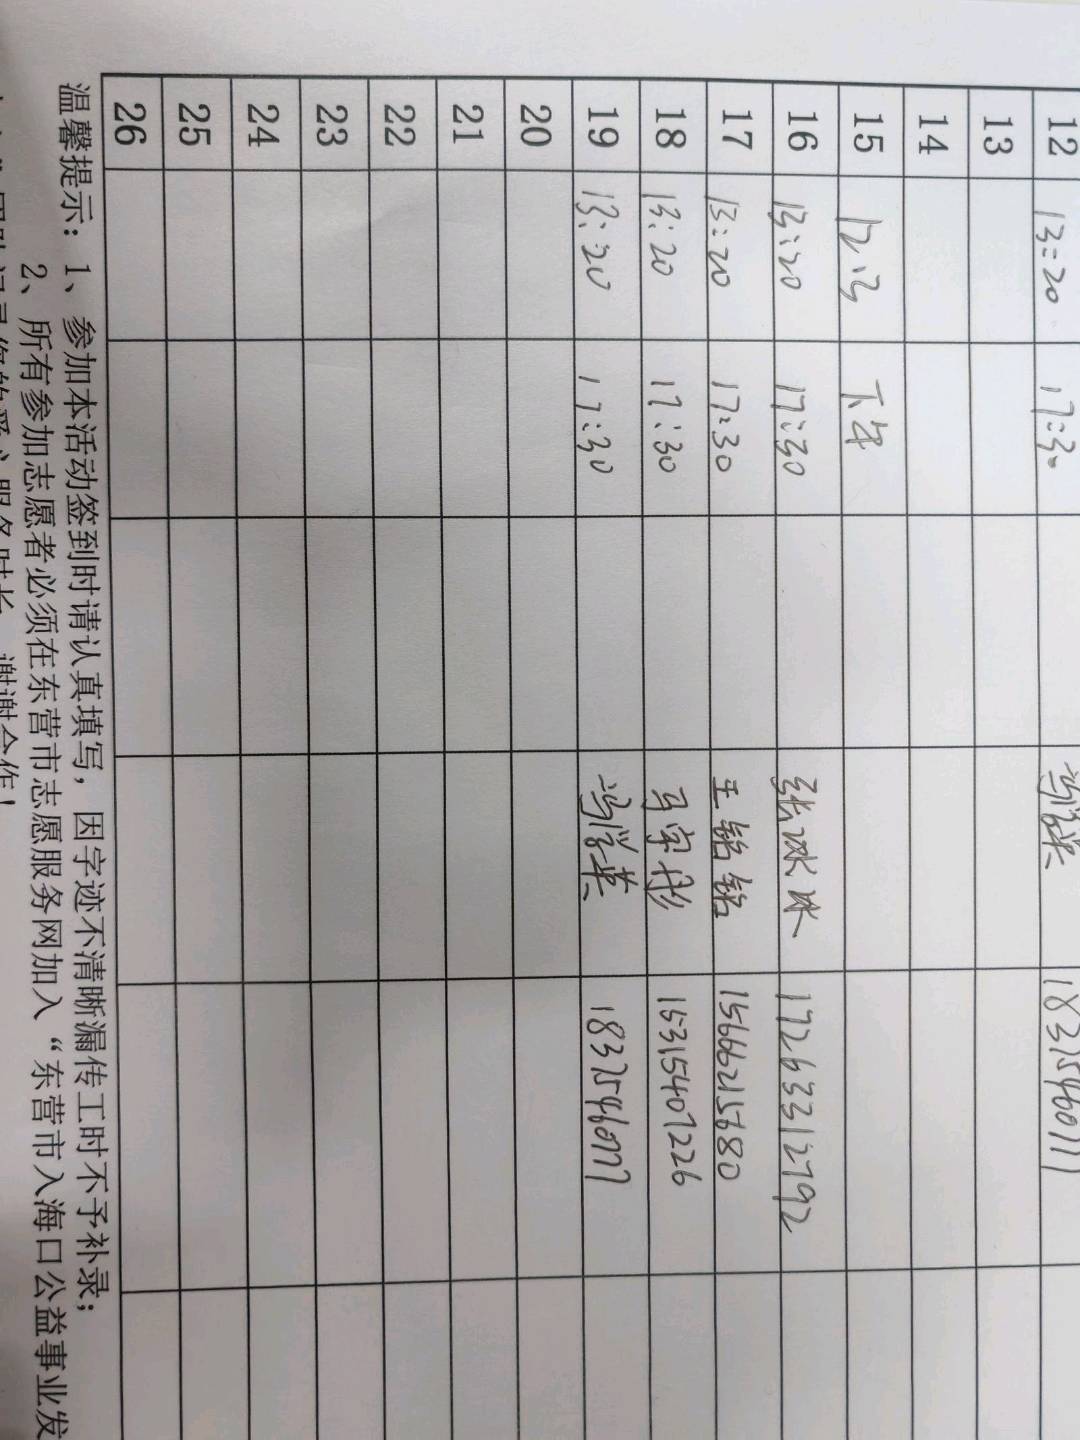 12 13:20 17:30 冯学英 18375460777
13
14
15 12.3 下午
16 13:20 17:30 张冰冰 17263312792
17 13:20 17:30 王铭铭 15666215680
18 13:20 17:30 马宗彤 15315407226
19 13:20 17:30 冯学英 18375460777
20
21
22
23
24
25
26
温馨提示：1、参加本活动签到时请认真填写，因字迹不清晰漏传工时不予补录；
2、所有参加志愿者必须在东营市志愿服务网加入“东营市入海口公益事业发
服务时长，谢谢合作！